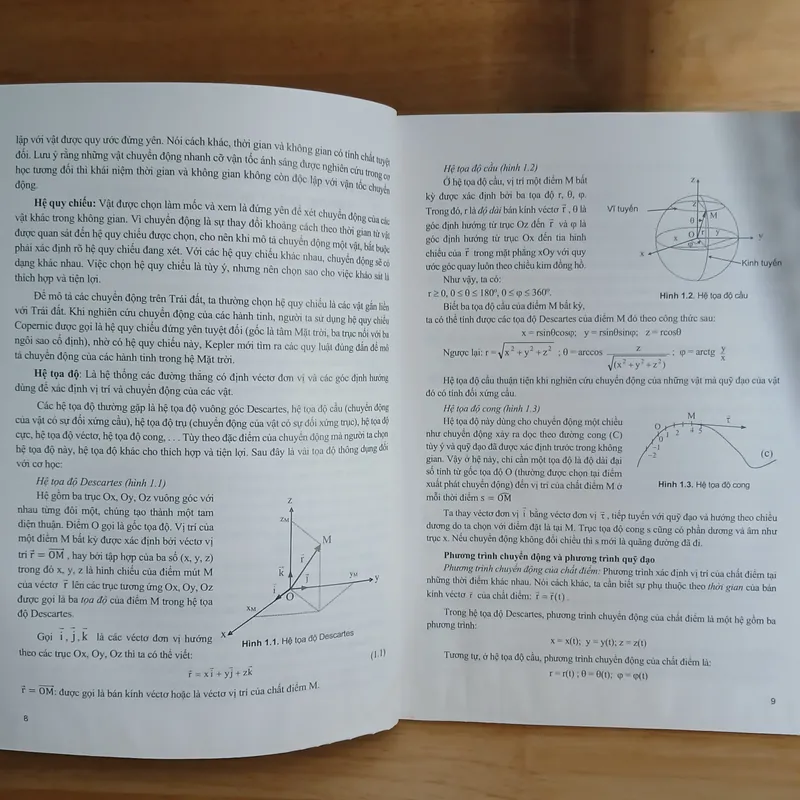 lập với vật được quy ước đứng yên. Nói cách khác, thời gian và không gian có tính chất tuyệt
đối. Lưu ý rằng những vật chuyển động nhanh cỡ vận tốc ánh sáng được nghiên cứu trong cơ
học tương đối thì khái niệm thời gian và không gian không còn độc lập với vận tốc chuyển
động.
Hệ quy chiếu: Vật được chọn làm mốc và xem là đứng yên để xét chuyển động của các
vật khác trong không gian. Vì chuyển động là sự thay đổi khoảng cách theo thời gian từ vật
được quan sát đến hệ quy chiếu được chọn, cho nên khi mô tả chuyển động một vật, bắt buộc
phải xác định rõ hệ quy chiếu đang xét. Với các hệ quy chiếu khác nhau, chuyển động sẽ có
dạng khác nhau. Việc chọn hệ quy chiếu là tùy ý, nhưng nên chọn sao cho việc khảo sát là
thích hợp và tiện lợi.
Để mô tả các chuyển động trên Trái đất, ta thường chọn hệ quy chiếu là các vật gắn liền
với Trái đất. Khi nghiên cứu chuyển động của các hành tinh, người ta sử dụng hệ quy chiếu
Copernic được gọi là hệ quy chiếu đứng yên tuyệt đối (gốc là tâm Mặt trời, ba trục nối với ba
ngôi sao cố định), nhờ có hệ quy chiếu này, Kepler mới tìm ra các quy luật đúng đắn để mô
tả chuyển động của các hành tinh trong hệ Mặt trời.
Hệ tọa độ: Là hệ thống các đường thẳng có định véctơ đơn vị và các góc định hướng
dùng để xác định vị trí và chuyển động của các vật.
Các hệ tọa độ thường gặp là hệ tọa độ vuông góc Descartes, hệ tọa độ cầu (chuyển động
của vật có sự đối xứng cầu), hệ tọa độ trụ (chuyển động của vật có sự đối xứng trục), hệ tọa độ
cực, hệ tọa độ véctơ, hệ tọa độ cong, . . . Tùy theo đặc điểm của chuyển động mà người ta chọn
hệ tọa độ này, hệ tọa độ khác cho thích hợp và tiện lợi. Sau đây là vài tọa độ thông dụng đối
với cơ học:
Hệ tọa độ Descartes (hình 1.1)
Hệ gồm ba trục Ox, Oy, Oz vuông góc với
nhau từng đôi một, chúng tạo thành một tam
diện thuận. Điểm O gọi là gốc tọa độ. Vị trí của
một điểm M bất kỳ được xác định bởi véctơ vị
trí r⃗ = OM⃗, hay bởi tập hợp của ba số (x, y, z)
trong đó x, y, z là hình chiếu của điểm mút M
của véctơ r⃗ lên các trục tương ứng Ox, Oy, Oz
được gọi là ba tọa độ của điểm M trong hệ tọa
độ Descartes.
z
z_M
M
r⃗
k⃗
i⃗
j⃗
O
y_M
y
x_M
x
Hình 1.1. Hệ tọa độ Descartes
Gọi i⃗, j⃗, k⃗ là các véctơ đơn vị hướng
theo các trục Ox, Oy, Oz thì ta có thể viết:
r⃗ = xi⃗ + yj⃗ + zk⃗ (1.1)
r⃗ = OM⃗: được gọi là bán kính véctơ hoặc là véctơ vị trí của chất điểm M.
8
Hệ tọa độ cầu (hình 1.2)
Ở hệ tọa độ cầu, vị trí một điểm M bất
kỳ được xác định bởi ba tọa độ r, θ, φ.
Trong đó, r là độ dài bán kính véctơ r⃗, θ là
góc định hướng từ trục Oz đến r⃗ và φ là
góc định hướng từ trục Ox đến tia hình
chiếu của r⃗ trong mặt phẳng xOy với quy
ước góc quay luôn theo chiều kim đồng hồ.
Như vậy, ta có:
r ≥ 0, 0 ≤ θ ≤ 180º, 0 ≤ φ ≤ 360º.
Biết ba tọa độ cầu của điểm M bất kỳ,
z
Vĩ tuyến
z
M
θ
O
r
x
y
φ
x
y
Kinh tuyến
Hình 1.2. Hệ tọa độ cầu
ta có thể tính được các tọa độ Descartes của điểm M đó theo công thức sau:
x = rsinθcosφ; y = rsinθsinφ; z = rcosθ
Ngược lại: r = √(x² + y² + z²) ; θ = arccos z/√(x² + y² + z²) ; φ = arctg y/x
Hệ tọa độ cầu thuận tiện khi nghiên cứu chuyển động của những vật mà quỹ đạo của vật
đó có tính đối xứng cầu.
Hệ tọa độ cong (hình 1.3)
Hệ tọa độ này dùng cho chuyển động một chiều
như chuyển động xảy ra dọc theo đường cong (C)
tùy ý và quỹ đạo đã được xác định trước trong không
gian. Vậy ở hệ này, chỉ cần một tọa độ là độ dài đại
số tính từ gốc tọa độ O (thường được chọn tại điểm
xuất phát chuyển động) đến vị trí của chất điểm M ở
mỗi thời điểm s = OM
M
τ⃗
O
0 1 2 4 5
−1
−2
(c)
Hình 1.3. Hệ tọa độ cong
Ta thay véctơ đơn vị i⃗ bằng véctơ đơn vị τ⃗, tiếp tuyến với quỹ đạo và hướng theo chiều
dương do ta chọn với điểm đặt là tại M. Trục tọa độ cong s cũng có phần dương và âm như
trục x. Nếu chuyển động không đổi chiều thì s mới là quãng đường đã đi.
Phương trình chuyển động và phương trình quỹ đạo
Phương trình chuyển động của chất điểm: Phương trình xác định vị trí của chất điểm tại
những thời điểm khác nhau. Nói cách khác, ta cần biết sự phụ thuộc theo thời gian của bán
kính véctơ r⃗ của chất điểm: r⃗ = r⃗(t) .
Trong hệ tọa độ Descartes, phương trình chuyển động của chất điểm là một hệ gồm ba
phương trình:
x = x(t); y = y(t); z = z(t)
Tương tự, ở hệ tọa độ cầu, phương trình chuyển động của chất điểm là:
r = r(t) ; θ = θ(t); φ = φ(t)
9